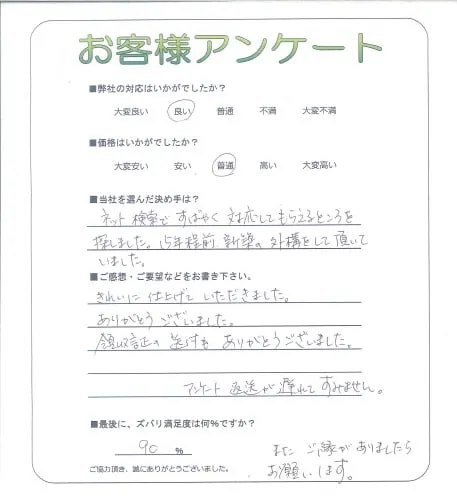 お客様アンケート
■弊社の対応はいかがでしたか？
大変良い 良い 普通 不満 大変不満
■価格はいかがでしたか？
大変安い 安い 普通 高い 大変高い
■当社を選んだ決め手は？
ネット検索ですばやく対応してもらえるところを
探しました。15年程前新築の外構をして頂いて
いました。
■ご感想・ご要望などをお書き下さい。
きれいに仕上げていただきました。
ありがとうございました。
領収証の送付もありがとうございました。
アンケート返送が遅れてすみません。
■最後に、ズバリ満足度は何％ですか？
90 %
またご縁がありましたら
お願いします。
ご協力頂き、誠にありがとうございました。